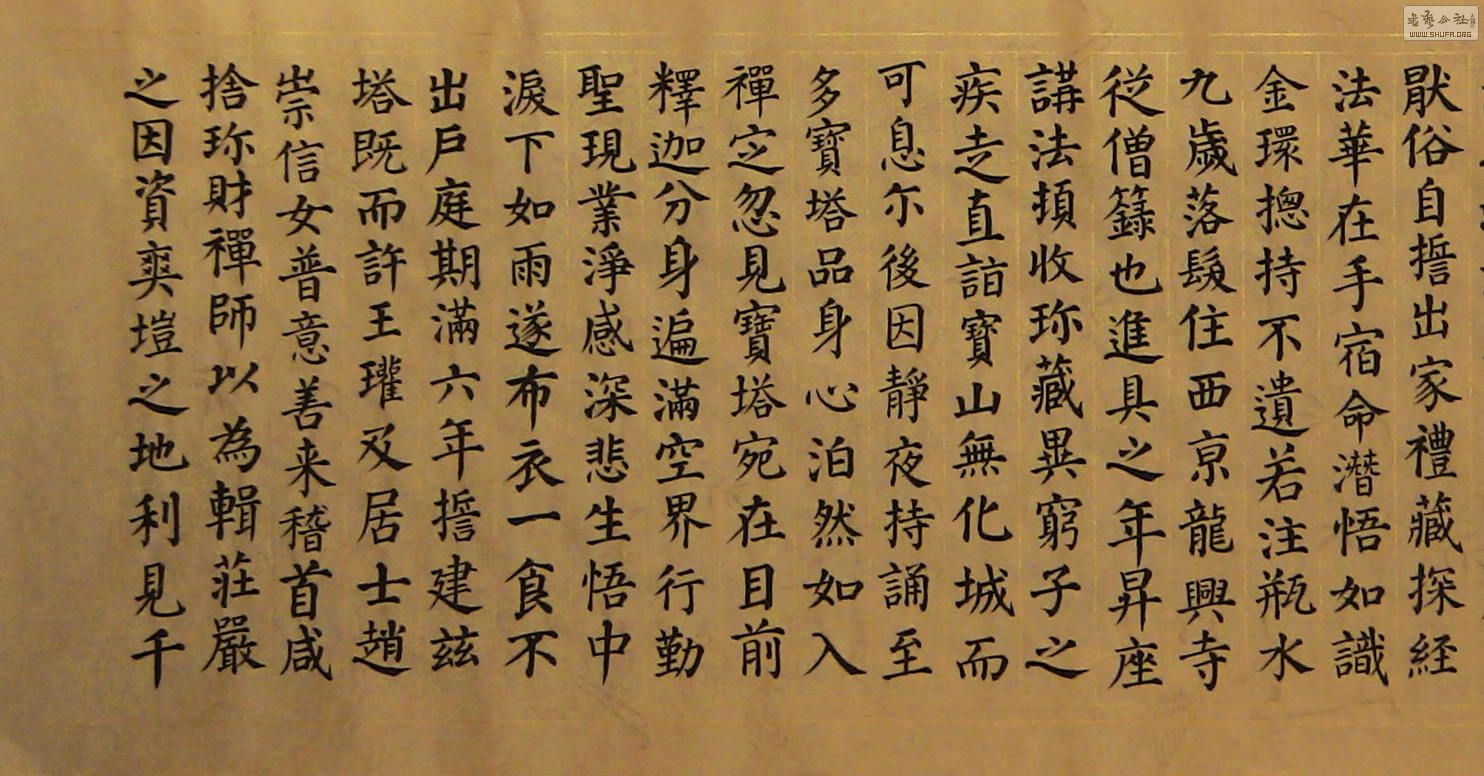 猒俗自誓出家禮藏探経
法華在手宿命潛悟如識
金環揔持不遺若注瓶水
九歲落髮住西京龍興寺
從僧籙也進具之年昇座
講法頓收珎藏異窮子之
疾走直詣寶山無化城而
可息尓後因靜夜持誦至
多寶塔品身心泊然如入
禪定忽見寶塔宛在目前
釋迦分身遍滿空界行勤
聖現業淨感深悲生悟中
淚下如雨遂布衣一食不
出戶庭期滿六年誓建茲
塔既而許王瓘及居士趙
崇信女普意善来稽首咸
捨珎財禪師以為輯莊嚴
之因資爽塏之地利見千
書藝公社
WWW.SHUFA.ORG